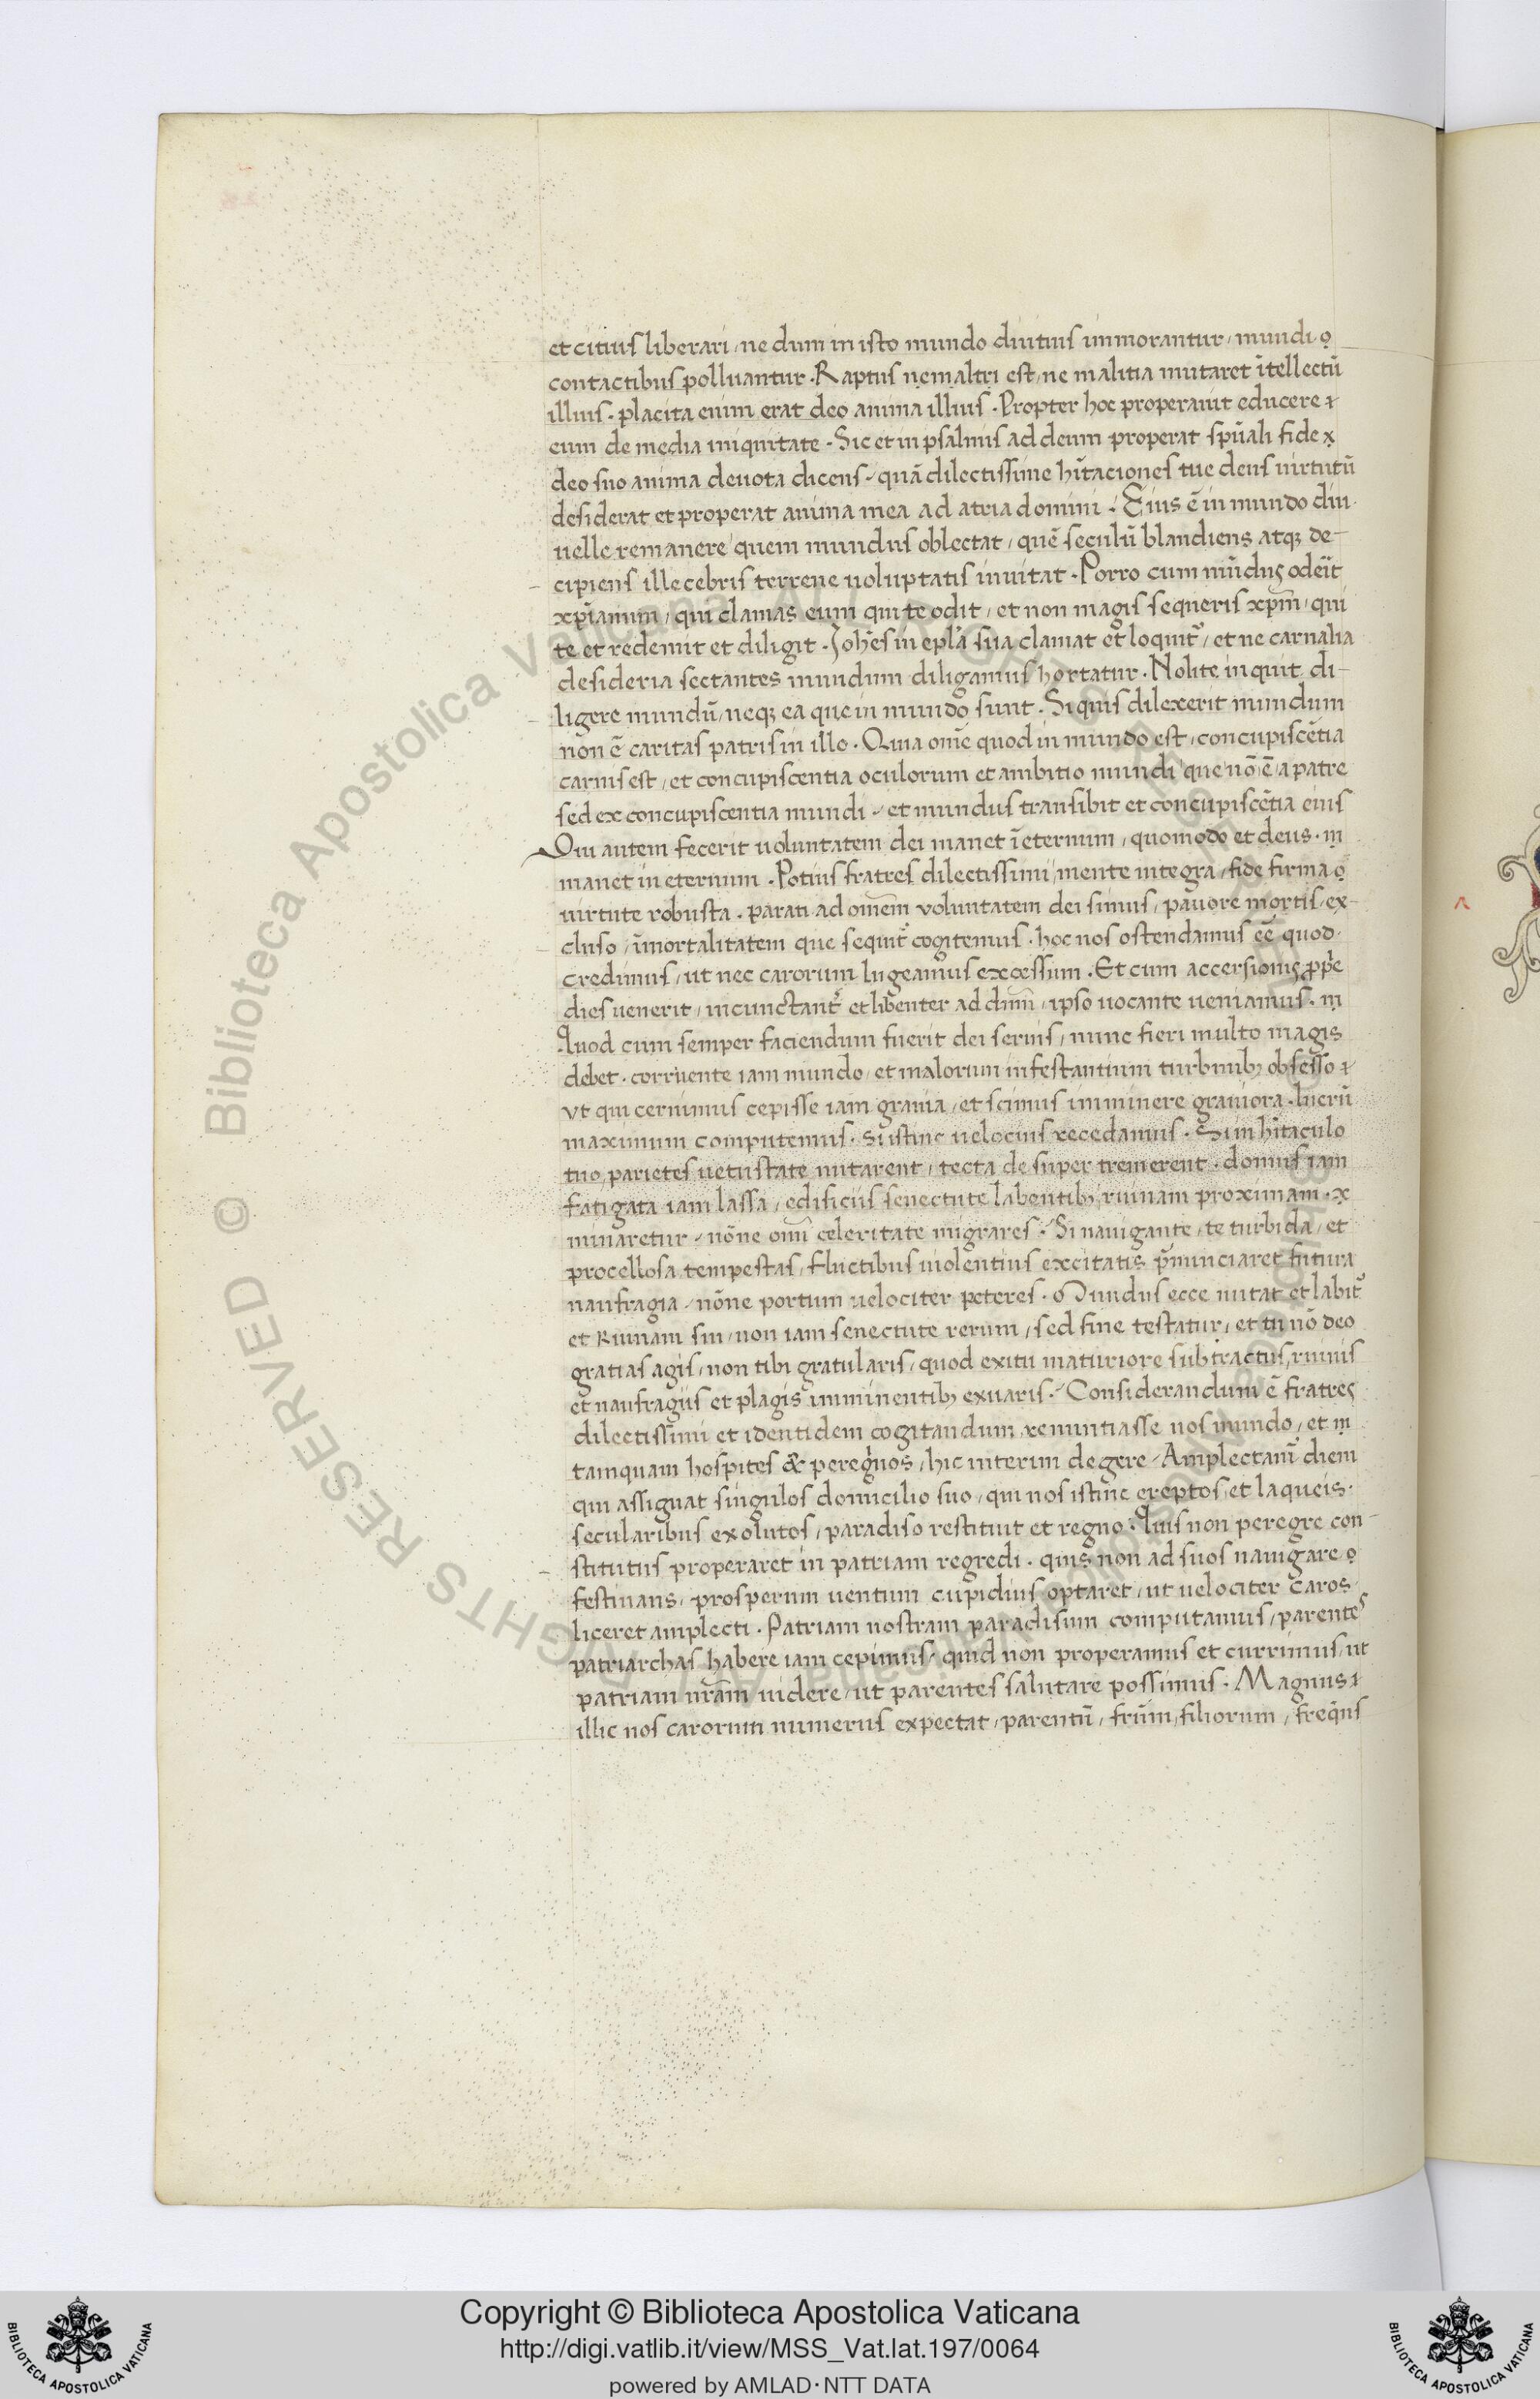 et citius liberari, ne dum in isto mundo diutius immorantur, mundi o
contactibus polluantur. Raptus nemaltri est, ne malitia mutaret ītellectū
illius. placita enim erat deo anima illius. Propter hoc properauit educere
eum de media iniquitate. Sic et in psalmis ad deum properat spūali fide x
deo suo anima deuota dicens, quā dilectissime hītaciones tue deus uirtutū
desiderat et properat anima mea ad atria domini. Eius ē in mundo diu
uelle remanere quem mundus oblectat, quē seculū blandiens atqꝫ de-
cipiens illecebris terrene uoluptatis inuitat. Porro cum mūdus oderit
xp̄ianum, qui clamas eum qui te odit, et non magis sequeris xp̄m, qui
te et redemit et diligit. Johēs in epl̄a sua clamat et loquit᷑, et ne carnalia
desideria sectantes mundum diligamus hortatur. Nolite inquit di-
ligere mundū, neqꝫ ea que in mundo sunt. Si quis dilexerit mundum
non ē caritas patris in illo. Quia om̄e quod in mundo est, concupiscētia
carnis est, et concupiscentia oculorum et ambitio mundi que nō ē a patre
sed ex concupiscentia mundi, et mundus transibit et concupiscētia eius
Qui autem fecerit uoluntatem dei manet ī eternum, quomodo et deus. m
manet in eternum. Potius fratres dilectissimi, mente integra, fide firma o
uirtute robusta. parati ad omem̄ voluntatem dei simus, pauore mortis, ex-
cluso, īmortalitatem que sequit᷑ cogitemus. hoc nos ostendamus eē quod
credimus, ut nec carorum lugeamus excessum. Et cum accersionis ꝓp̄e
dies uenerit, incunctant᷑ et libenter ad dn̄m, ipso uocante ueniamus. m
Quod cum semper faciendum fuerit dei seruis, nunc fieri multo magis
debet. corruente iam mundo, et malorum infestantium turbinibꝫ obsesso
vt qui cernimus cepisse iam grauia, et scimus imminere grauiora. lucrū
maximum computemus. si istinc velocius recedamus. Si in hītaculo
tuo, parietes uetustate nutarent, tecta desuper tremerent. domus iam
fatigata iam lassa, edificiis senectute labentibꝫ ruinam proximam. x
minaretur, nōne omī celeritate migrares. Si nauigante, te turbida, et
procellosa tempestas, fluctibus uiolentius excitatis p̄nunciaret futura
naufragia, nōne portum uelociter peteres. Mundus ecce nutat et labit᷑
et Ruinam sui, non iam senectute rerum, sed fine testatur, et tu nō deo
gratias agis, non tibi gratularis, quod exitu maturiore subtractus, ruinis
et naufragiis et plagis imminentibꝫ exuaris. Considerandum ē fratres
dilectissimi et identidem cogitandum renuntiasse nos mundo, et m
tamquam hospites & peregrinos, hic interim degere. Amplectam᷑ diem
qui assignat singulos domicilio suo, qui nos istinc ereptos, et laqueis.
secularibus exolutos, paradiso restituit et regno. Quis non peregre con-
stitutus properaret in patriam regredi. quis non ad suos nauigare o
festinans, prosperum uentum cupidius optaret, ut uelociter caros
liceret amplecti. Patriam nostram paradisum computamus, parentes
patriarchas habere iam cepimus, quid non properamus et currimus, ut
patriam nrām uidere, ut parentes salutare possimus. Magnus
illic nos carorum numerus expectat, parentū, frūm, filiorum, freq̄ns
Copyright © Biblioteca Apostolica Vaticana
http://digi.vatlib.it/view/MSS_Vat.lat.197/0064
powered by AMLAD·NTT DATA
BIBLIOTECA APOSTOLICA VATICANA
BIBLIOTECA APOSTOLICA VATICANA